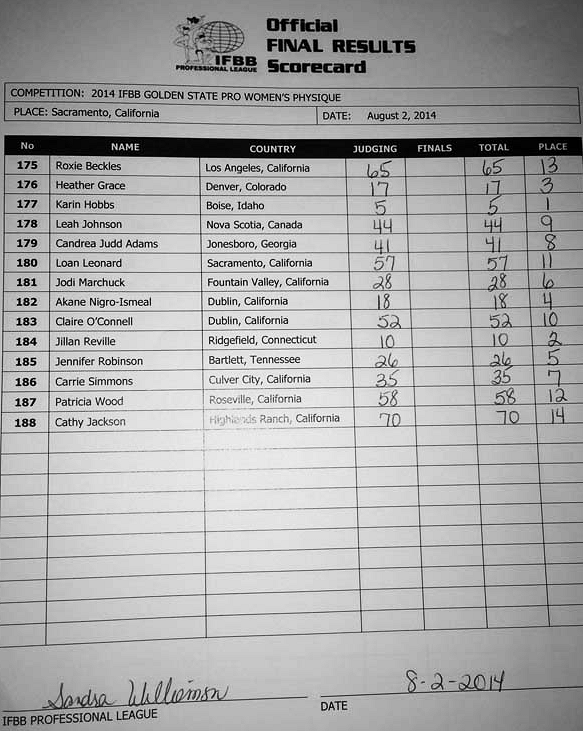 Official
FINAL RESULTS
Scorecard
IFBB
PROFESSIONAL LEAGUE
COMPETITION: 2014 IFBB GOLDEN STATE PRO WOMEN'S PHYSIQUE
PLACE: Sacramento, California DATE: August 2, 2014
No NAME COUNTRY JUDGING FINALS TOTAL PLACE
175 Roxie Beckles Los Angeles, California 65 65 13
176 Heather Grace Denver, Colorado 17 17 3
177 Karin Hobbs Boise, Idaho 5 5 1
178 Leah Johnson Nova Scotia, Canada 44 44 9
179 Candrea Judd Adams Jonesboro, Georgia 41 41 8
180 Loan Leonard Sacramento, California 57 57 11
181 Jodi Marchuck Fountain Valley, California 28 28 6
182 Akane Nigro-Ismeal Dublin, California 18 18 4
183 Claire O'Connell Dublin, California 52 52 10
184 Jillan Reville Ridgefield, Connecticut 10 10 2
185 Jennifer Robinson Bartlett, Tennessee 26 26 5
186 Carrie Simmons Culver City, California 35 35 7
187 Patricia Wood Roseville, California 58 58 12
188 Cathy Jackson Highlands Ranch, California 70 70 14
Sandra Williamson 8-2-2014
IFBB PROFESSIONAL LEAGUE DATE